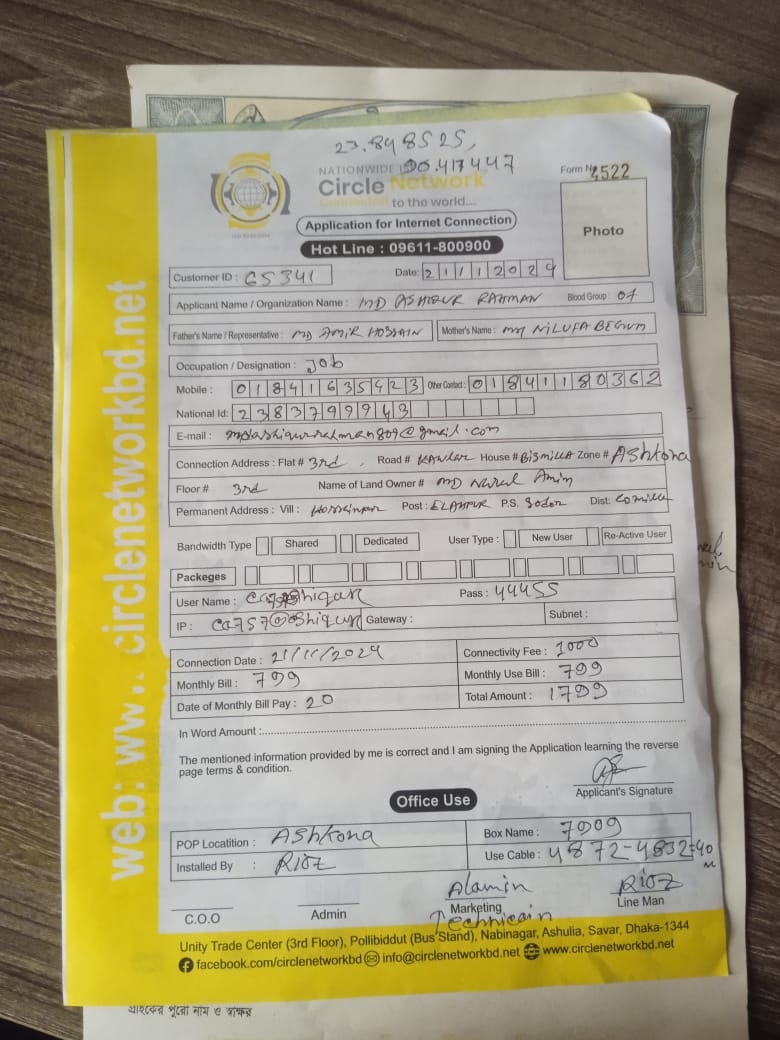 23.848525,
90.417447
NATIONWIDE
Circle Network
Connected to the world....
Form No 4522
Application for Internet Connection
Hot Line : 09611-800900
Photo
Customer ID : C5341 Date: 21112024
Applicant Name / Organization Name : MD ASHIQUR RAHMAN Blood Group : O+
Father's Name / Representative : MD AMIR HOSSAIN Mother's Name : MY NILUFA BEGUM
Occupation / Designation : Job
Mobile : 01841635423 Other Contact : 01841180362
National Id: 2383799943
E-mail : mdashiqurrahman809@gmail.com
Connection Address : Flat # 3rd , Road # KAWLAR House # Bismilla Zone # Ashkona
Floor # 3rd Name of Land Owner # MD Nurul Amin
Permanent Address : Vill : Hossainpur Post : ELAHPUR P.S. Sodor Dist: Comilla
Bandwidth Type Shared Dedicated User Type : New User Re-Active User
Packeges
User Name : Pass : 44455
IP : Gateway : Subnet :
Connection Date : 21/11/2024 Connectivity Fee : 1000
Monthly Bill : 799 Monthly Use Bill : 799
Date of Monthly Bill Pay : 20 Total Amount : 1799
In Word Amount :
The mentioned information provided by me is correct and I am signing the Application learning the reverse
page terms & condition.
Applicant's Signature
Office Use
POP Locatition : Ashkona Box Name : 7909
Installed By : Rioz Use Cable : 4872-4832=40
m
Alamin Rioz
C.O.O Admin Marketing Line Man
Technicain
Unity Trade Center (3rd Floor), Pollibiddut (Bus Stand), Nabinagar, Ashulia, Savar, Dhaka-1344
facebook.com/circlenetworkbd info@circlenetworkbd.net www.circlenetworkbd.net
web: www. circlenetworkbd.net
গ্রাহকের পুরো নাম ও স্বাক্ষর